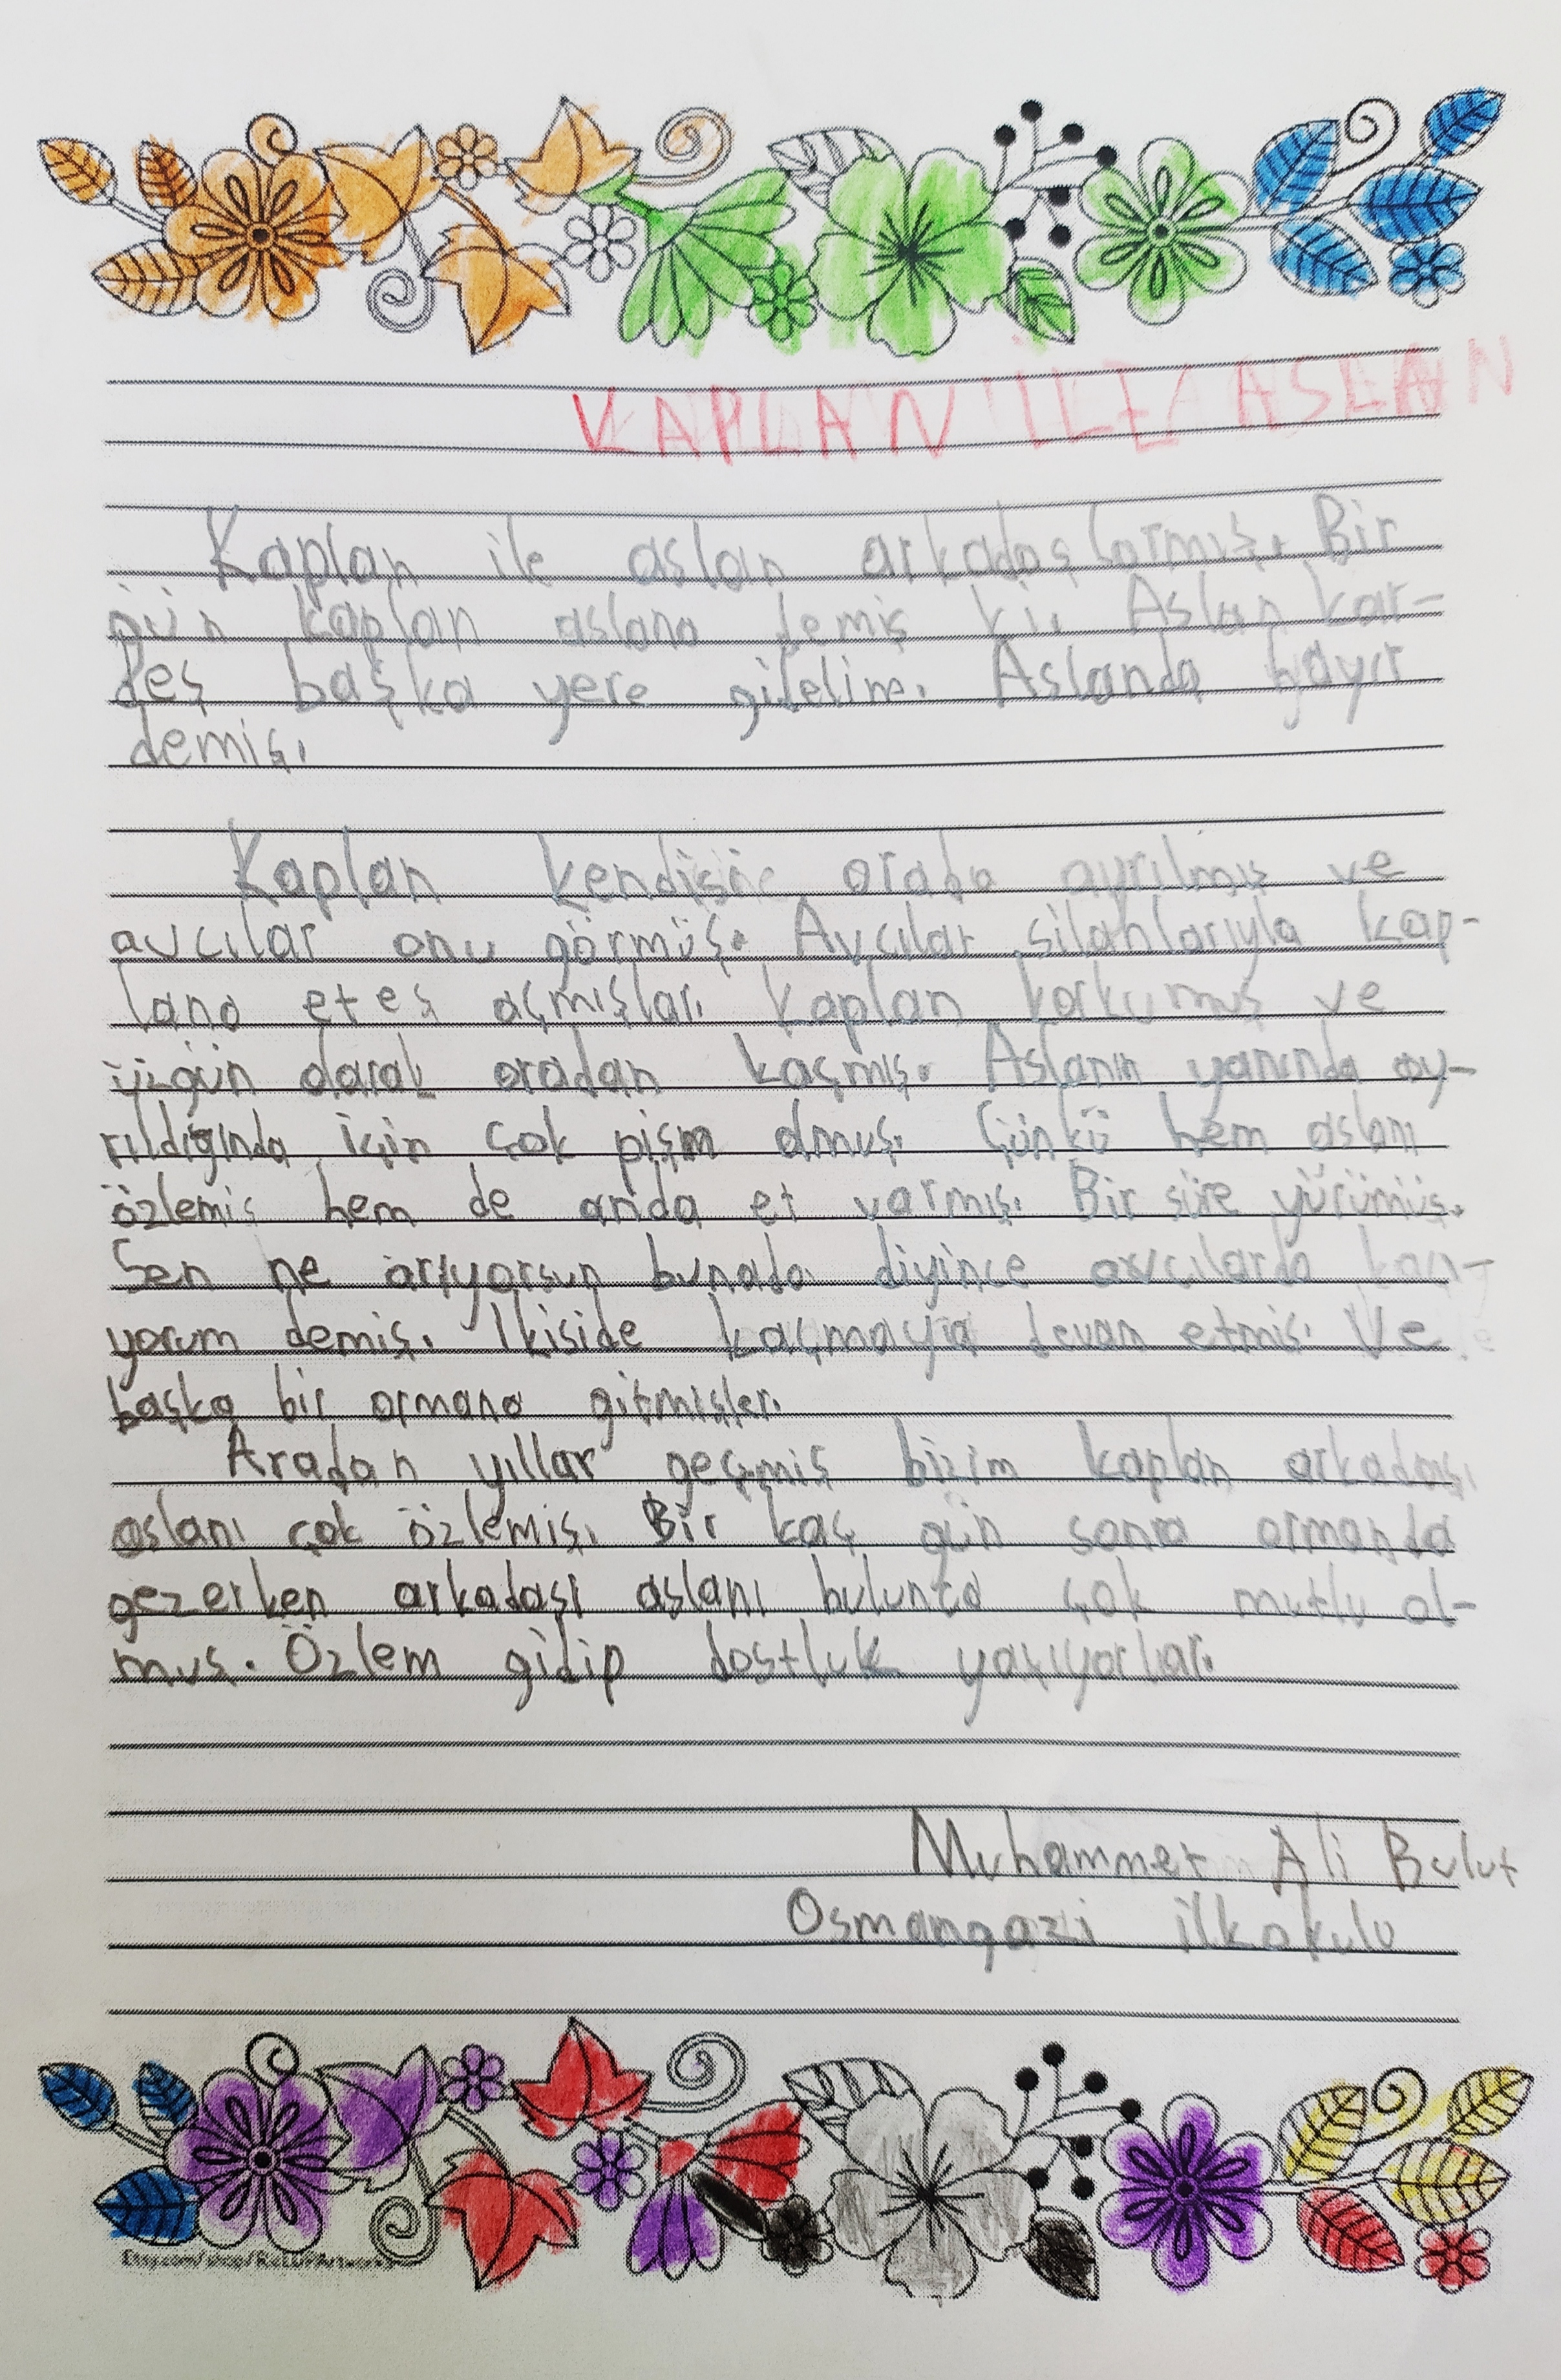 KAPLAN İLE ASLAN
Kaplan ile aslan arkadaşlarmış. Bir
gün kaplan aslana demiş ki. Aslan kar-
deş başka yere gidelim. Aslanda hayır
demiş.
Kaplan kendisine orada ayrılmış ve
avcılar onu görmüş. Avcılar silahlarıyla kap-
lana eteş açmışlar. Kaplan korkumuş ve
üzgün olarak oradan kaçmış. Aslanın yanında ay-
rıldığında için çok pişm olmuş. Çünkü hem aslanı
özlemiş hem de et varmış. Bir süre yürümüş.
Sen ne arıyorsun bunada diyince avcılarda kan-
yorum demiş. İkiside kaçmaya devan etmiş. Ve
başka bir ormana gitmişler.
Aradan yıllar geçmiş bizim kaplan arkadaşı
aslanı çok özlemiş. Bir kaç gün sonra ormanda
gezerken arkadaşı aslanı bulunca çok mutlu ol-
muş. Özlem gidip dostluk yaşıyorlar.
Muhammet Ali Bulut
Osmangazi ilkokulu